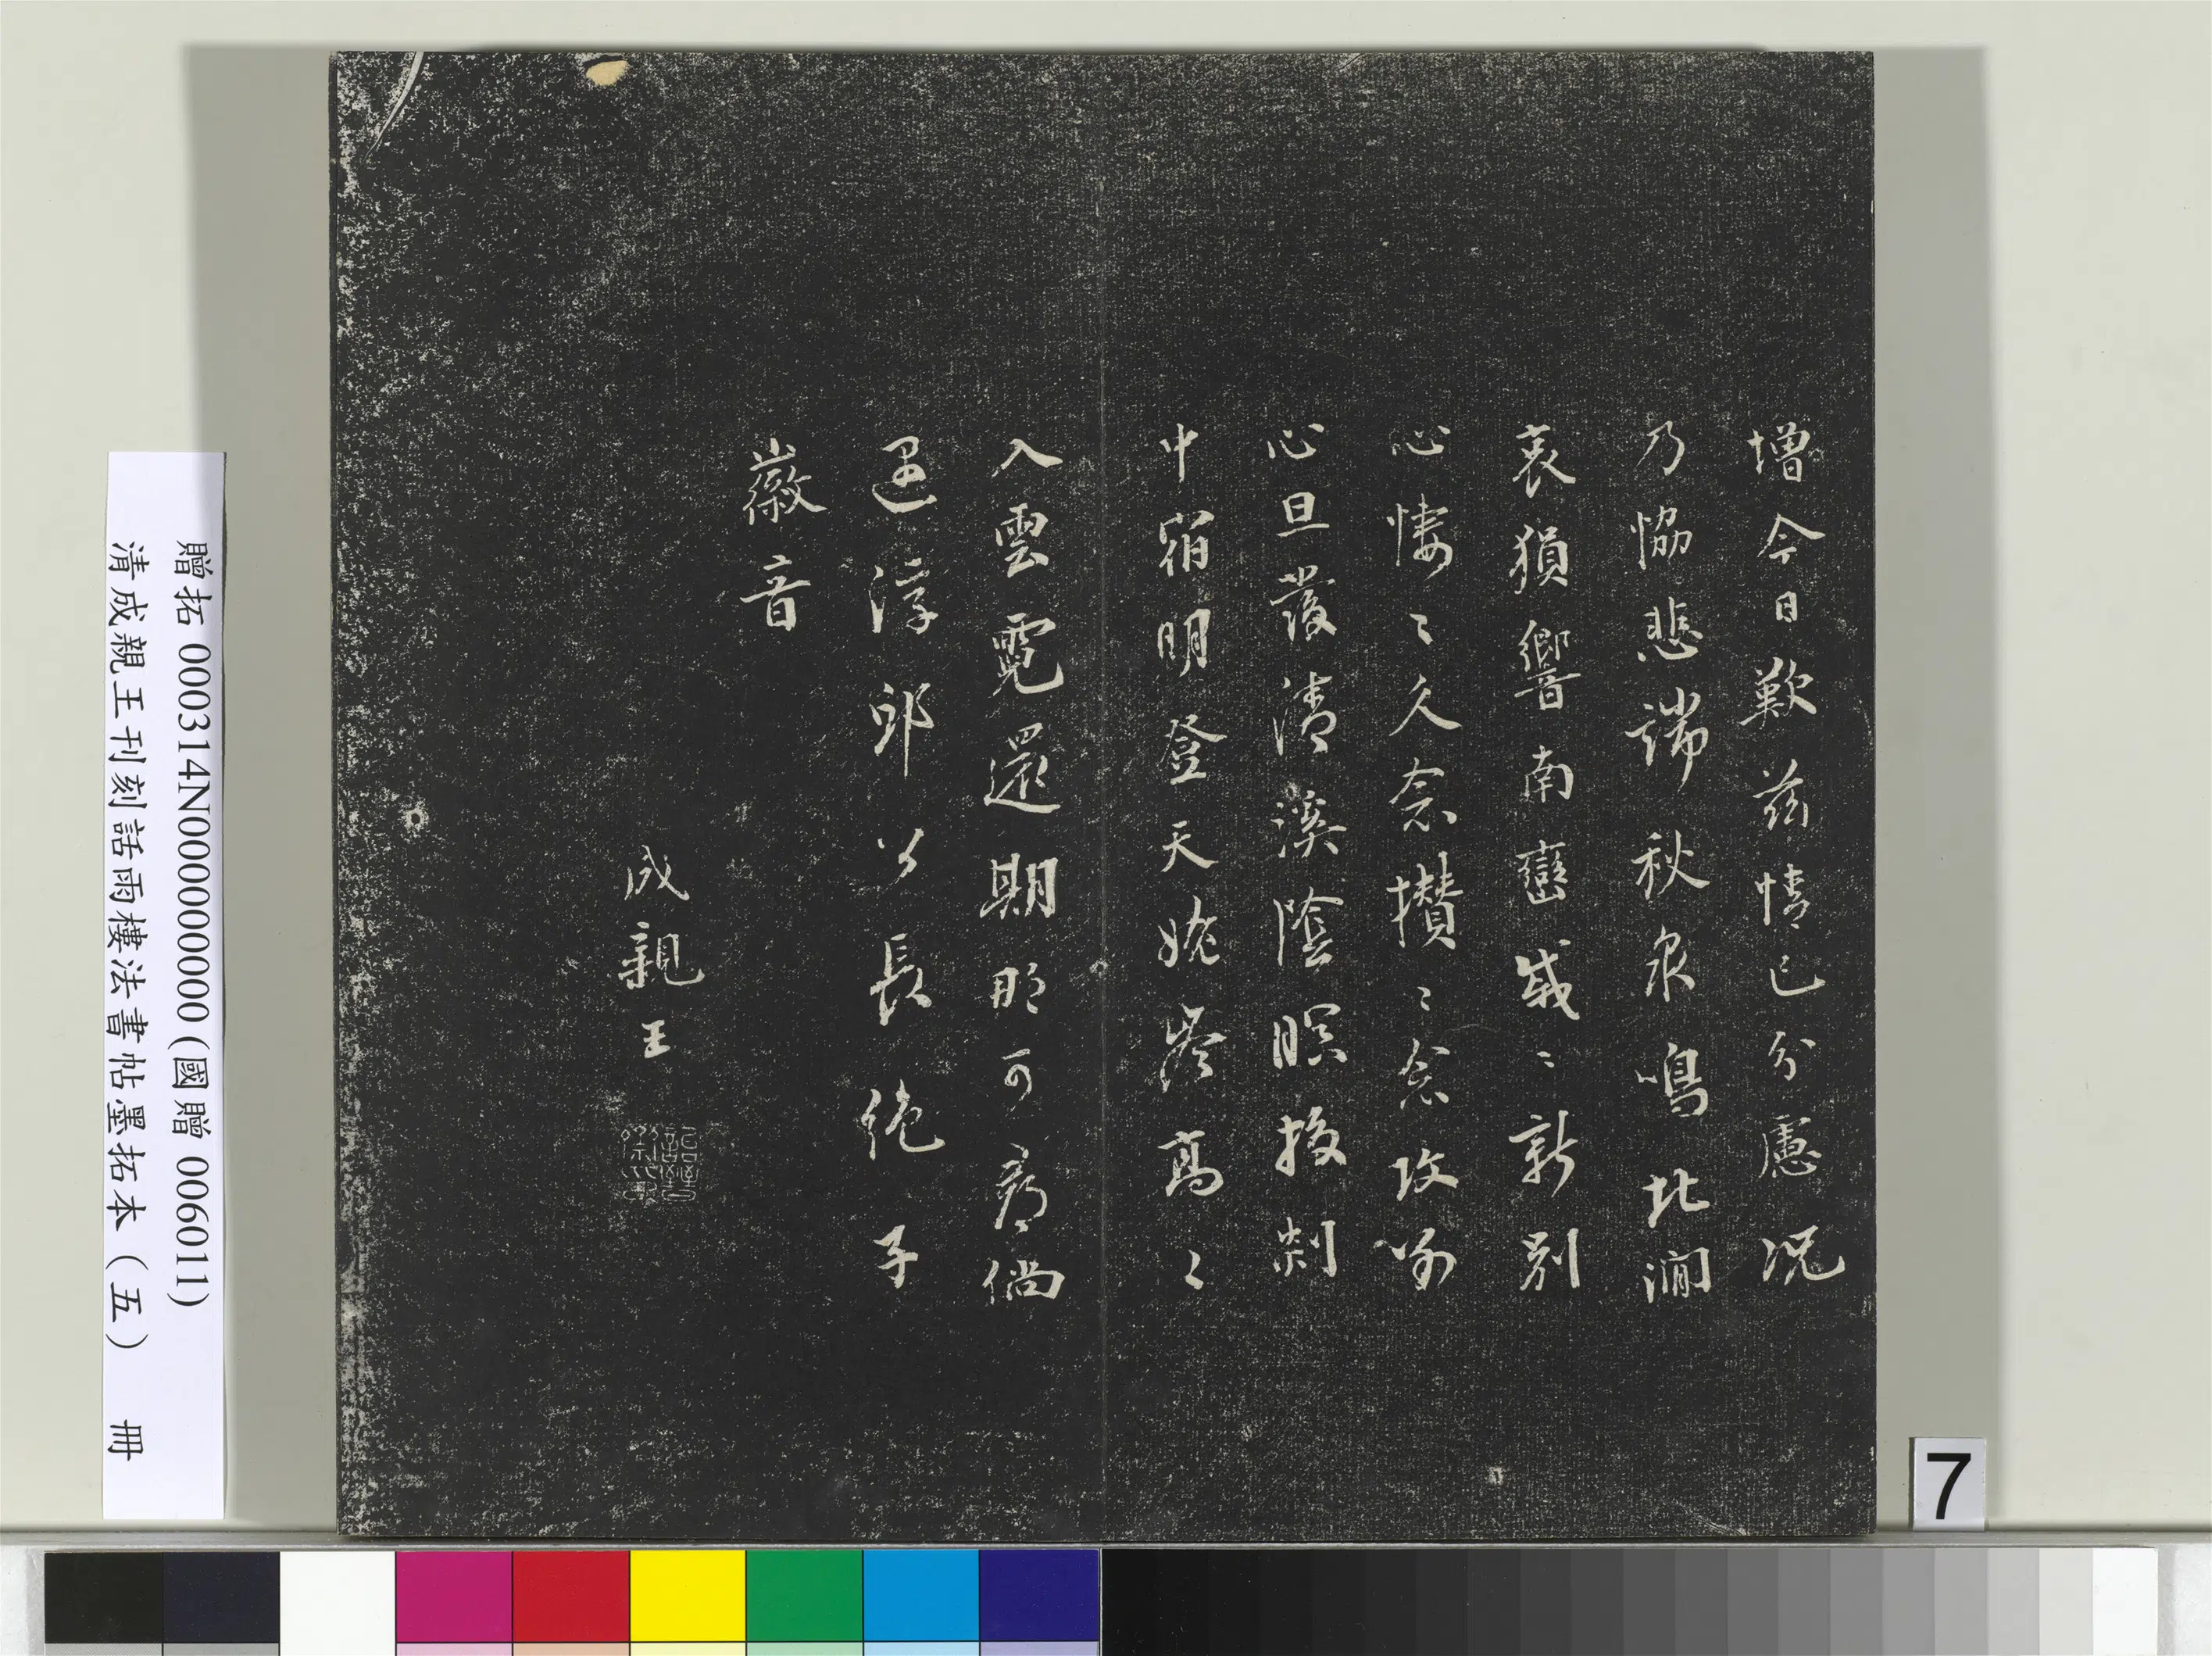 增今日歎茲情已分慮況
乃恊悲端秋泉鳴北澗
哀猨響南巒戚〻新別
心悽〻久念攢〻念攻別
心旦發清溪陰瞑投剡
中宿明登天姥岑高〻
入雲霓還期那可尋倘
遇浮邱公長絶子
徽音
成親王
贈拓 000314N000000000(國贈 006011)
清成親王刊刻話雨樓法書帖墨拓本(五) 冊
7